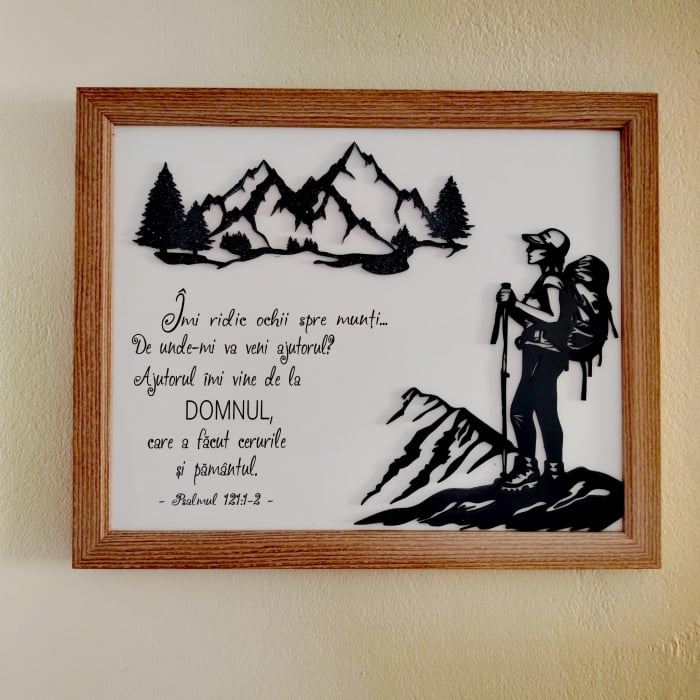 Îmi ridic ochii spre munți...
De unde-mi va veni ajutorul?
Ajutorul îmi vine de la
DOMNUL,
care a făcut cerurile
și pământul.
- Psalmul 121:1-2 -